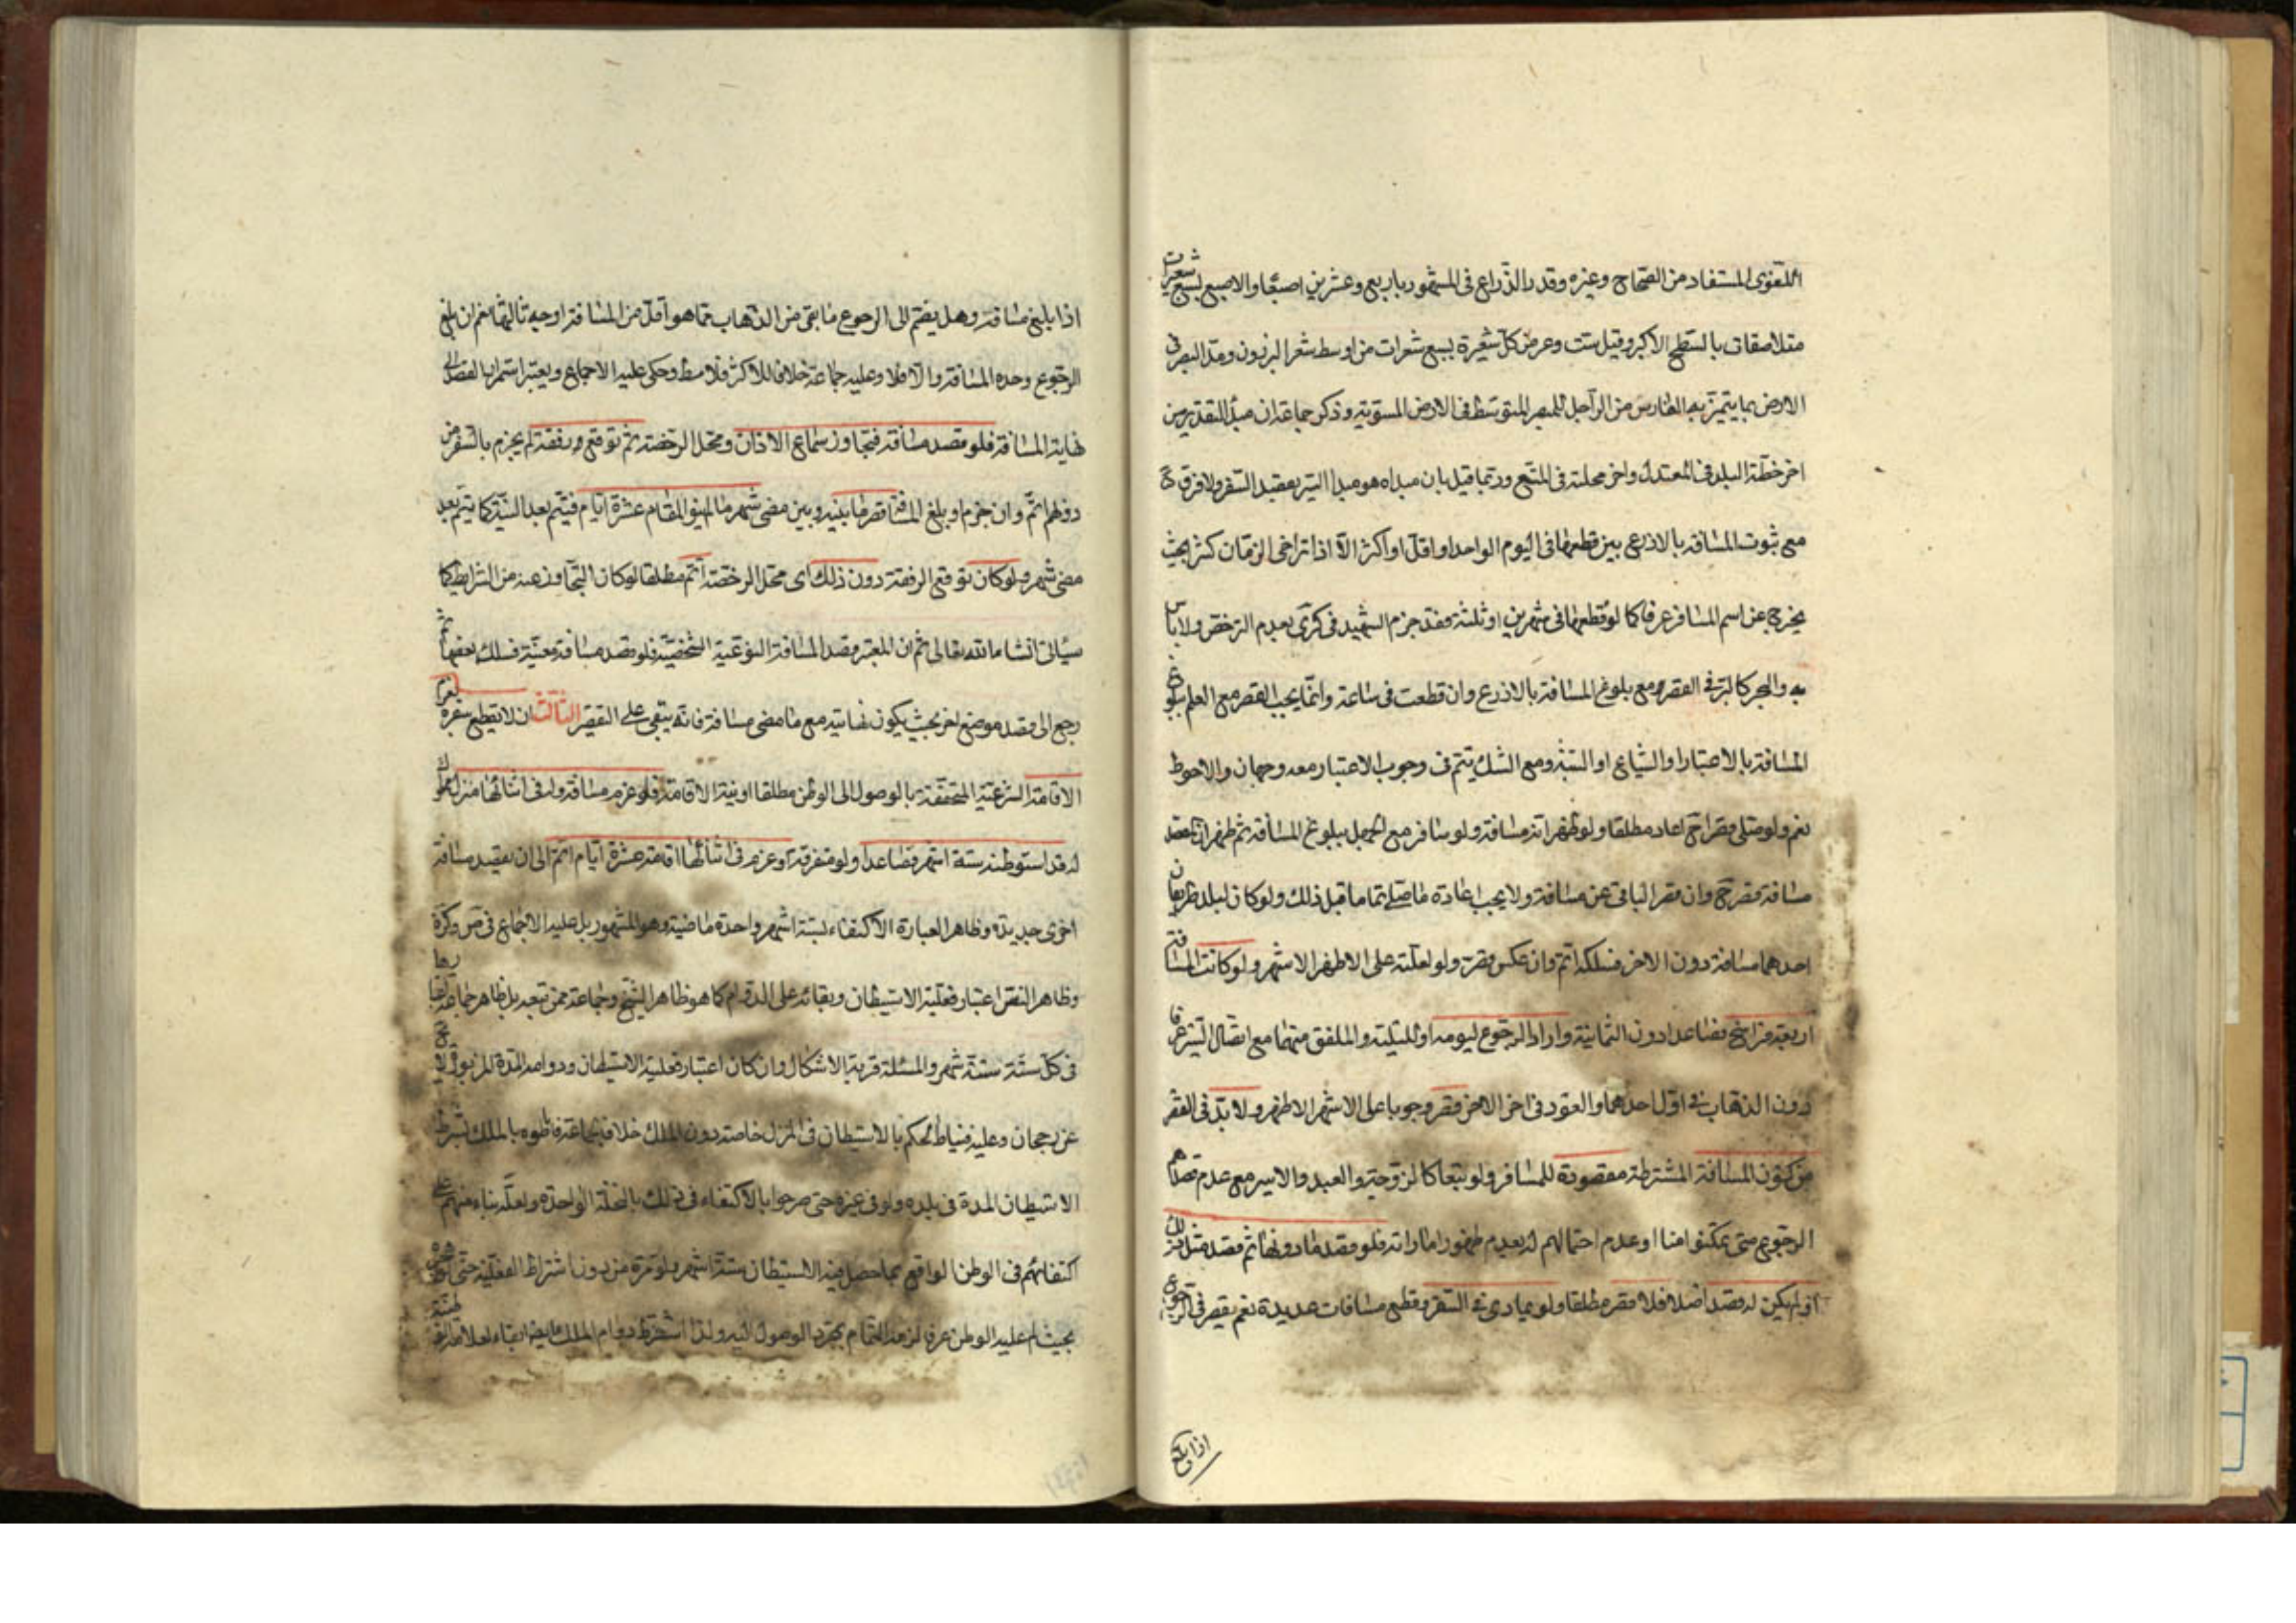 اللغوى المستفاد من الصحاح وغيره وقدر الذراع فى المشهور باربع وعشرين اصبعا والاصبع بسبع شعيرات
متلاصقات بالسطح الاكبر وقيل ست وعرض كل شعيرة بسبع شعرات من اوسط شعر البرذون ومد البصر فى
الارض بما يتميز به الفارس من الراجل للمبصر المتوسط فى الارض المستوية وذكر جماعة ان مبدأ التقدير من
اخر خطة البلد فى المعتدل واخر محلته فى المتسع وربما قيل بان مبداه هو مبدا السير بقصد السفر ولا فرق ح
مع ثبوت المسافة بالاذرع بين قطعها فى اليوم الواحد او اقل او اكثر الا اذا تراخى الزمان كثيرا بحيث
يخرج عن اسم المسافر عرفا كما لو قطعها فى شهرين او ثلثة فقد جزم الشهيد فى كرى بعدم الترخص ولا باس
به والبحر كالبر فى القصر مع بلوغ المسافة بالاذرع وان قطعت فى ساعة وانما يجب القصر مع العلم ببلوغ
المسافة بالاعتبار او الشياع او البينة ومع الشك يتم وفى وجوب الاعتبار معه وجهان والاحوط
نعم ولو صلى قصرا ح اعاد مطلقا ولو ظهر انه مسافة ولو سافر مع الجهل ببلوغ المسافة ثم ظهر ان المقصد
مسافة قصر ح وان قصر الباقى عن مسافة ولا يجب اعادة ما صلى تماما قبل ذلك ولو كان لبلد طريقان
احدهما مسافة دون الاخر فسلكه اتم وان عكس قصر ولو لعلته على الاظهر الاشهر ولو كانت المسافة
اربعة فراسخ فصاعدا دون الثمانية واراد الرجوع ليومه او لليلته والملفق منهما مع اتصال السير عرفا
دون الذهاب فى اول احدهما والعود فى اخر الاخر قصر وجوبا على الاشهر الاظهر ولا بد فى القصر
من كون المسافة المشترطة مقصودة للمسافر ولو تبعا كالزوجة والعبد والاسير مع عدم قصدهم
الرجوع متى تمكنوا منه او عدم احتمالهم له بعدم ظهور اماراته فلو قصد ما دونها ثم قصد مثل ذلك
او لم يكن له قصد اصلا فلا قصر مطلقا ولو تمادى فى السفر وقطع مسافات عديدة نعم يقصر فى الرجوع
اذا بلغ
اذا بلغ مسافة وهل يضم الى الرجوع ما بقى من الذهاب مما هو اقل من المسافة اوجه ثالثها نعم ان بلغ
الرجوع وحده المسافة والا فلا وعليه جماعة خلافا للاكثر فلا مط وحكى عليه الاجماع ويعتبر استمرار القصد الى
نهاية المسافة فلو قصد مسافة فتجاوز سماع الاذان ومحل الرخصة ثم توقع رفقة لم يجزم بالسفر من
دونهم اتم وان جزم او بلغ المسافة قصر ما بينه وبين مضى شهر ما لم ينو المقام عشرة ايام فيتم بعد النية كما يتم بعد
مضى شهر ولو كان توقع الرفقة دون ذلك اى محل الرخصة اتم مطلقا لو كان التجاوز عنه من الشرايط كما
سياتى انشاء الله تعالى ثم ان المعتبر قصد المسافة النوعية الشخصية فلو قصد مسافة معينة فسلك بعضها ثم
رجع الى قصد موضع اخر بحيث يكون نهايته مع ما مضى مسافة فانه يبقى على القصر الثالث ان لا يقطع سفره بعزم
الاقامة الشرعية المتحققة بالوصول الى الوطن مطلقا او نية الاقامة فلو عزم مسافة وله فى اثنائها منزل ملك
له قد استوطنه ستة اشهر فصاعدا ولو متفرقة او عزم فى اثنائها اقامة عشرة ايام اتم الى ان يقصد مسافة
اخرى جديدة وظاهر العبارة الاكتفاء بستة اشهر واحدة ماضية وهو المشهور بل عليه الاجماع فى ض وكرة
وظاهر النص اعتبار فعلية الاستيطان وبقائه على الدوام كما هو ظاهر الشيخ وجماعة ممن تبعه بل ظاهر جماعة
فى كل سنة ستة شهر والمسئلة قريبة الاشكال وان كان اعتبار فعلية الاستيطان ودوام المدة المزبورة لا يخ
عن رجحان وعليه فمناط الحكم بالاستيطان فى المنزل خاصة دون الملك خلافا لجماعة فاناطوه بالملك بشرط
الاستيطان المدة فى بلده ولو فى غيره حتى صرحوا بالاكتفاء فى ذلك بالنخلة الواحدة ولعله بناء منهم على
اكتفائهم فى الوطن الواقع بما حصل فيه الاستيطان ستة اشهر ولو مرة من دون اشتراط الفعلية حتى
بحيث عليه الوطن عرفا لزمه التمام بمجرد الوصول اليه ولذا اشترط دوام الملك